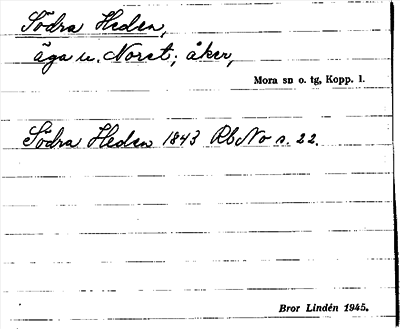 Södra Heden,
äga u. Noret; åker,
Mora sn o. tg, Kopp. l.
Södra Heden 1843 Rb No s. 22.
Bror Lindén 1945.